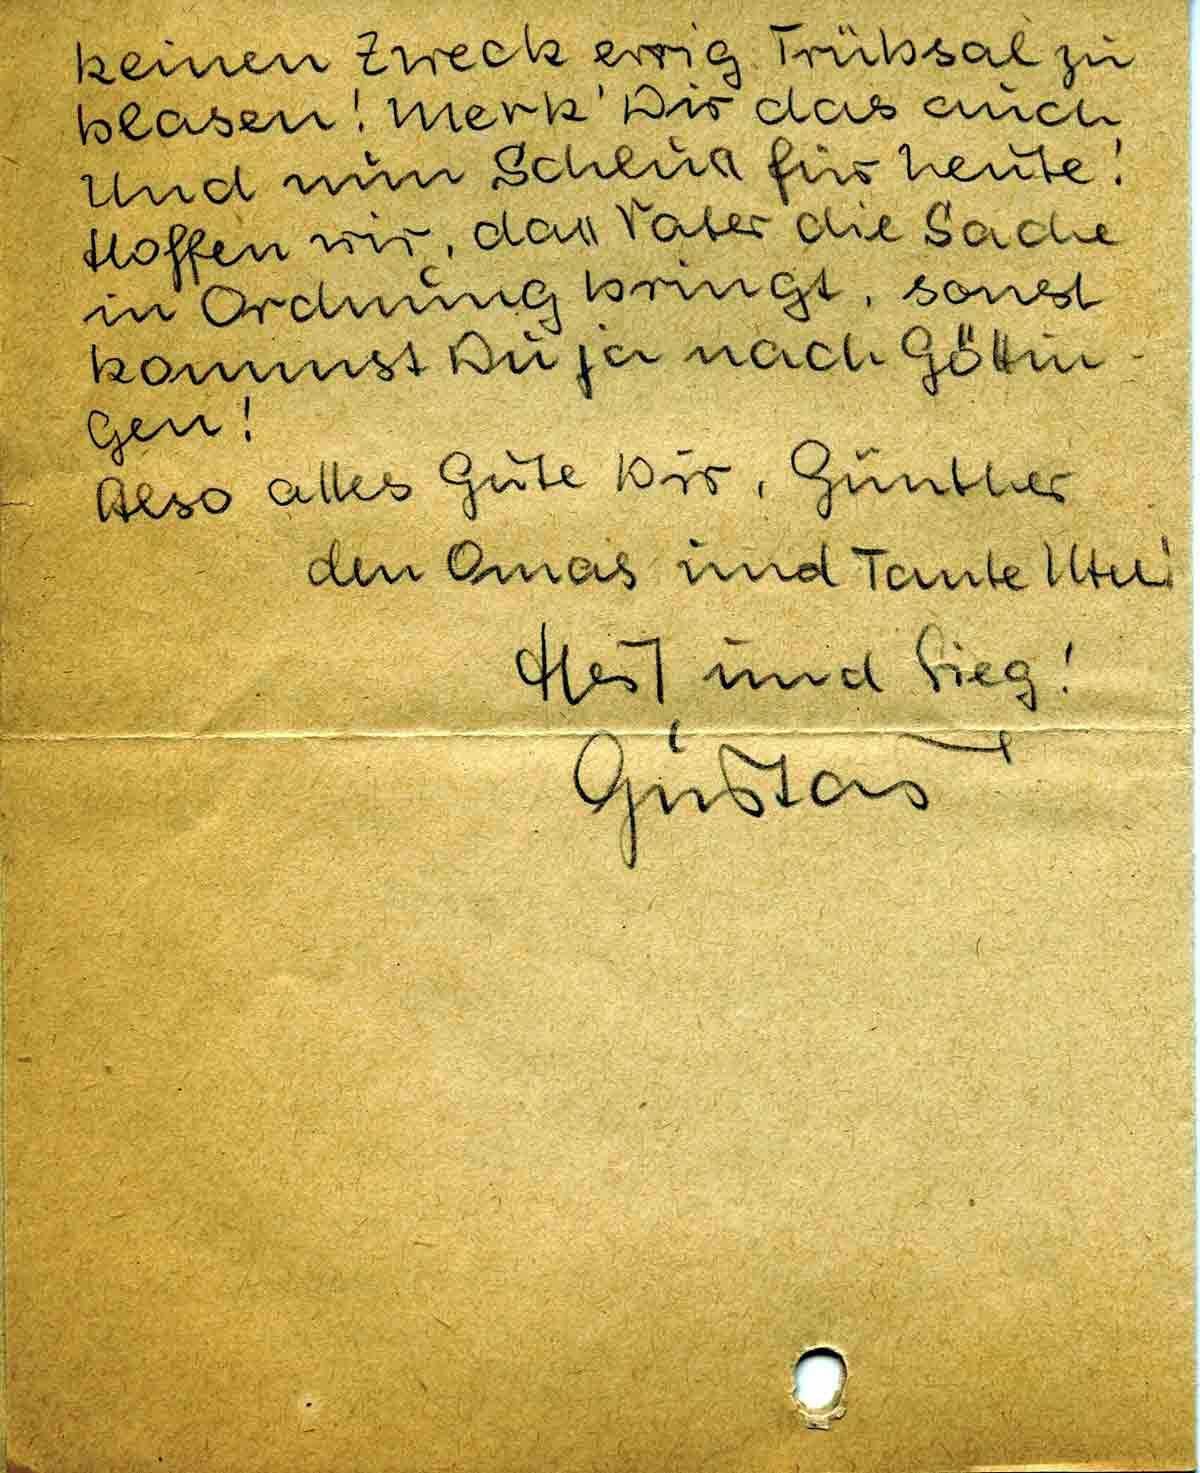 keinen Zweck ewig Trübsal zu
blasen! Merk' Dir das auch
Und nun Schluß für heute!
Hoffen wir, daß Vater die Sache
in Ordnung bringt, sonst
kommst Du ja nach Göttin-
gen!
Also alles Gute Dir, Günther
den Omas und Tante
und Sieg!
Gustav